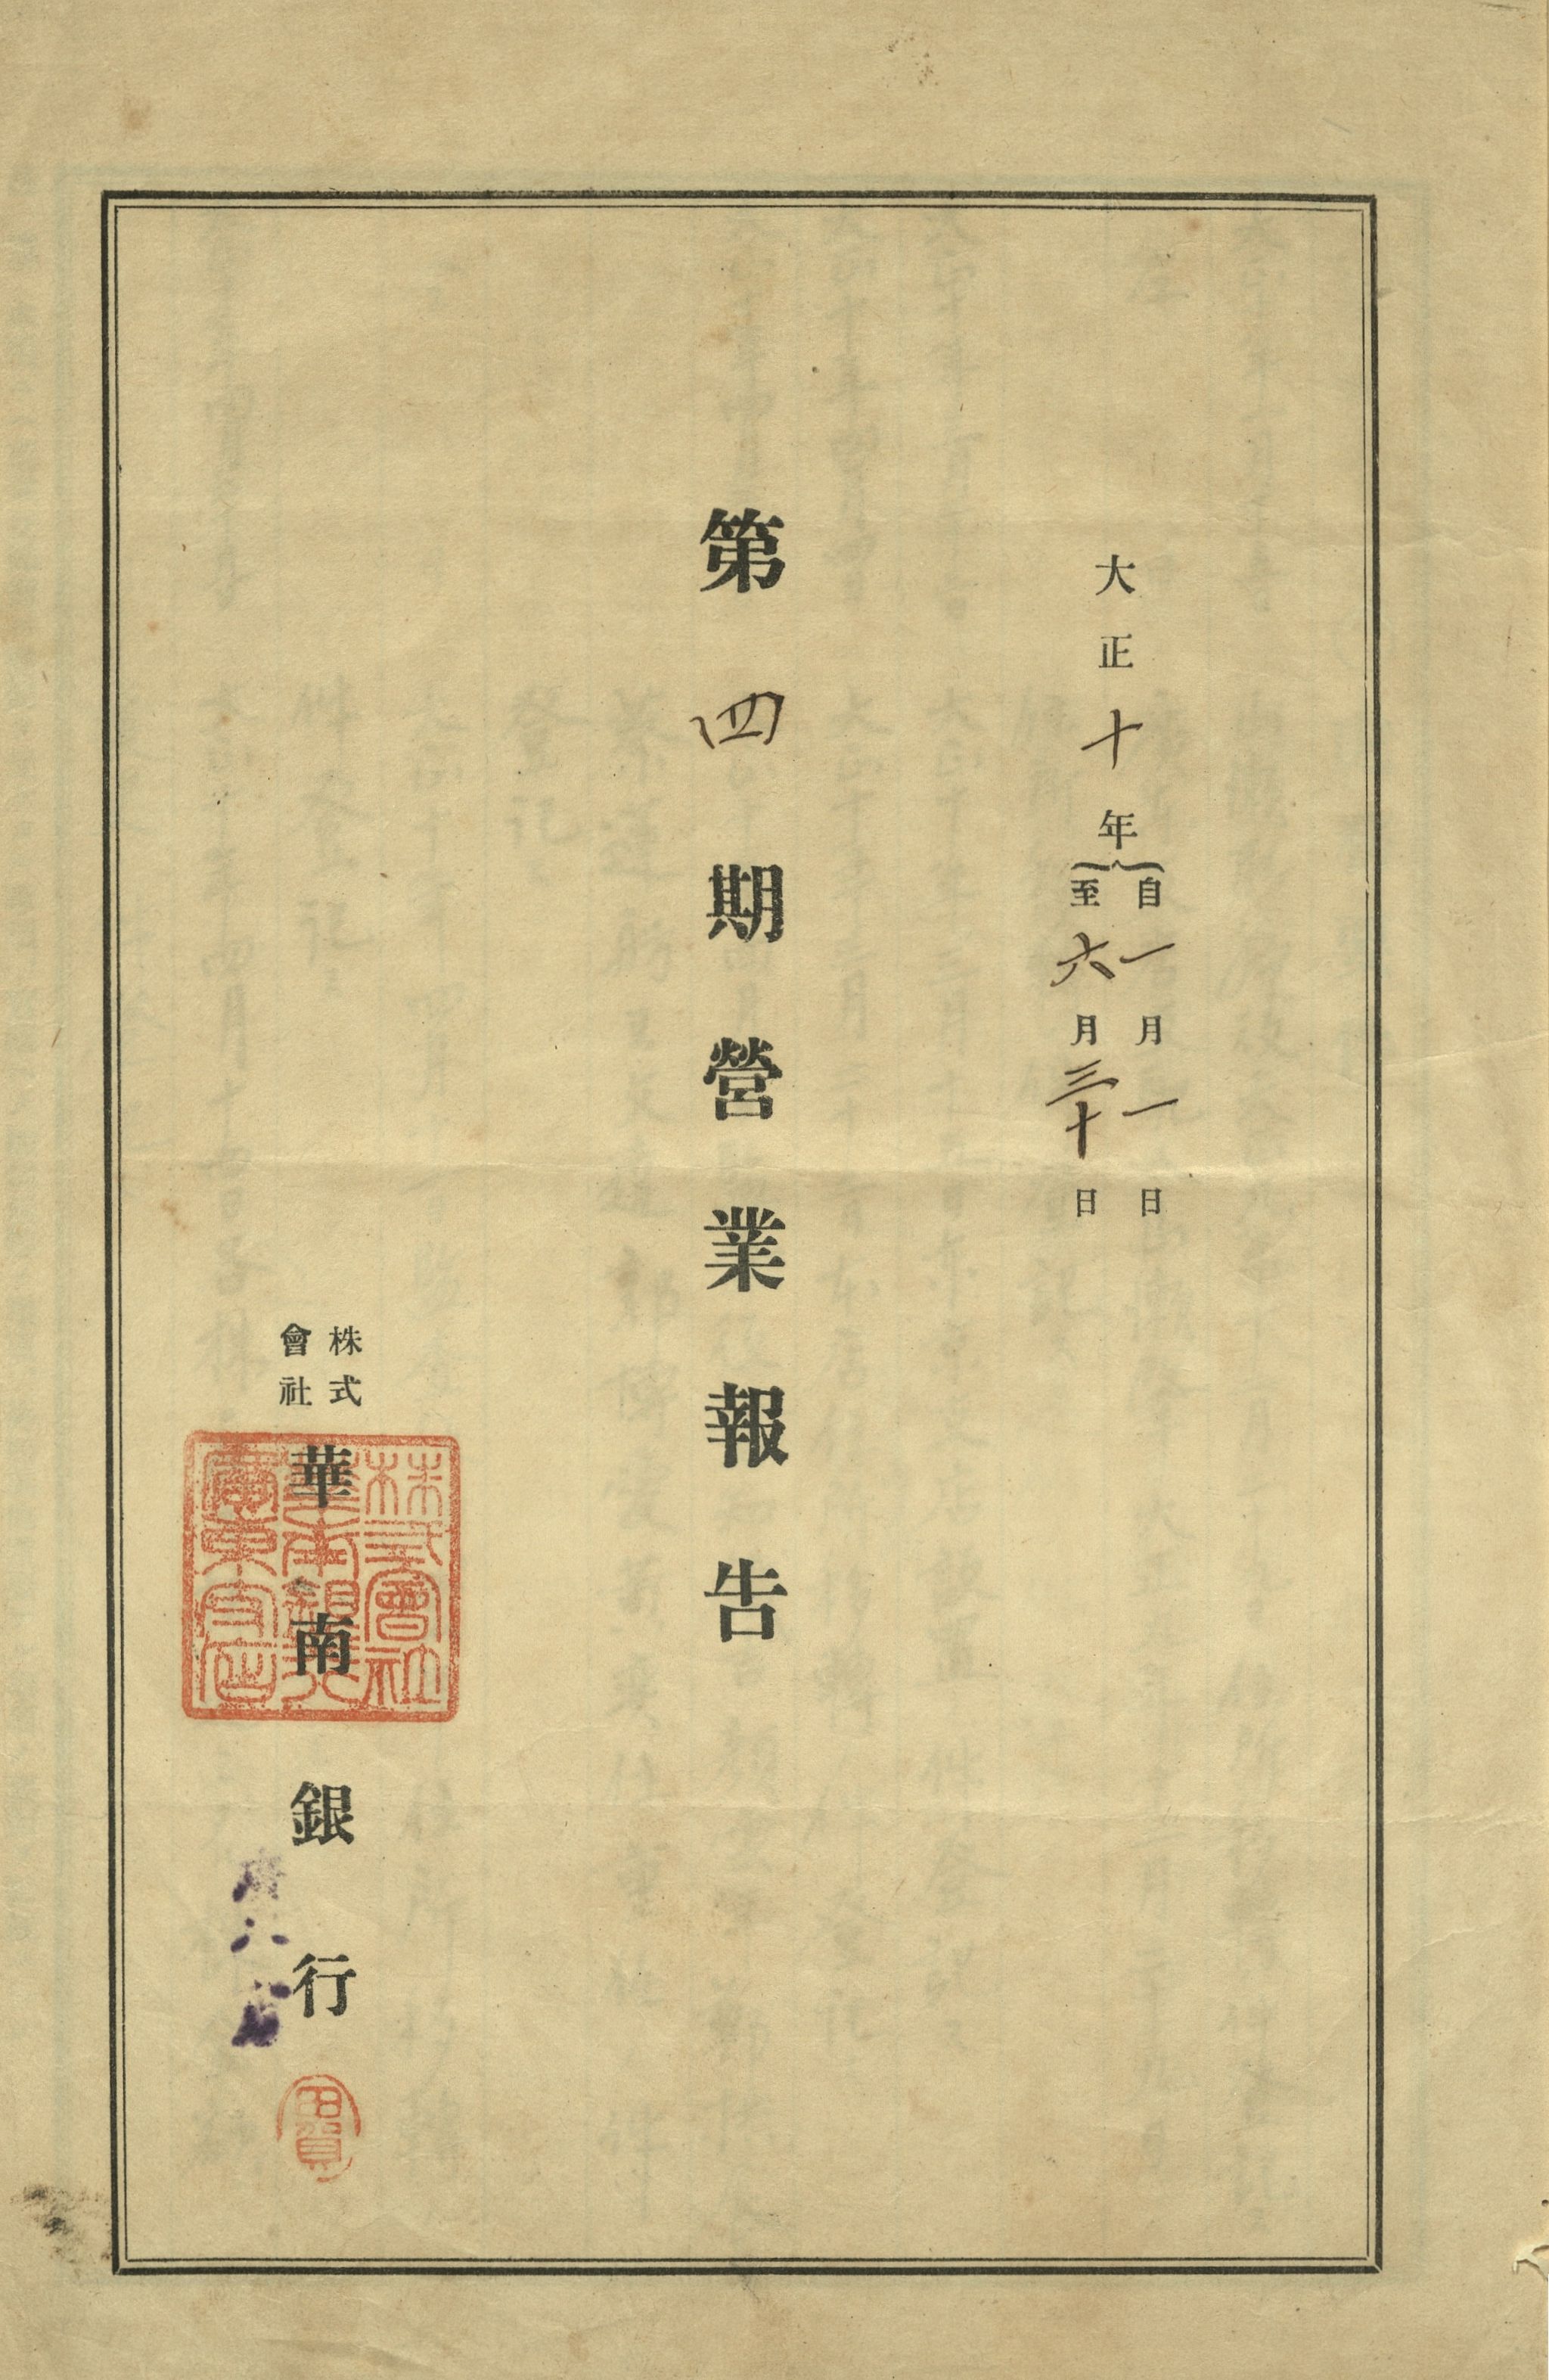 大正十年
自一月一日
至六月三十日
第四期營業報告
株式
會社
華南銀行
株式會社
華南銀行
廣東支店